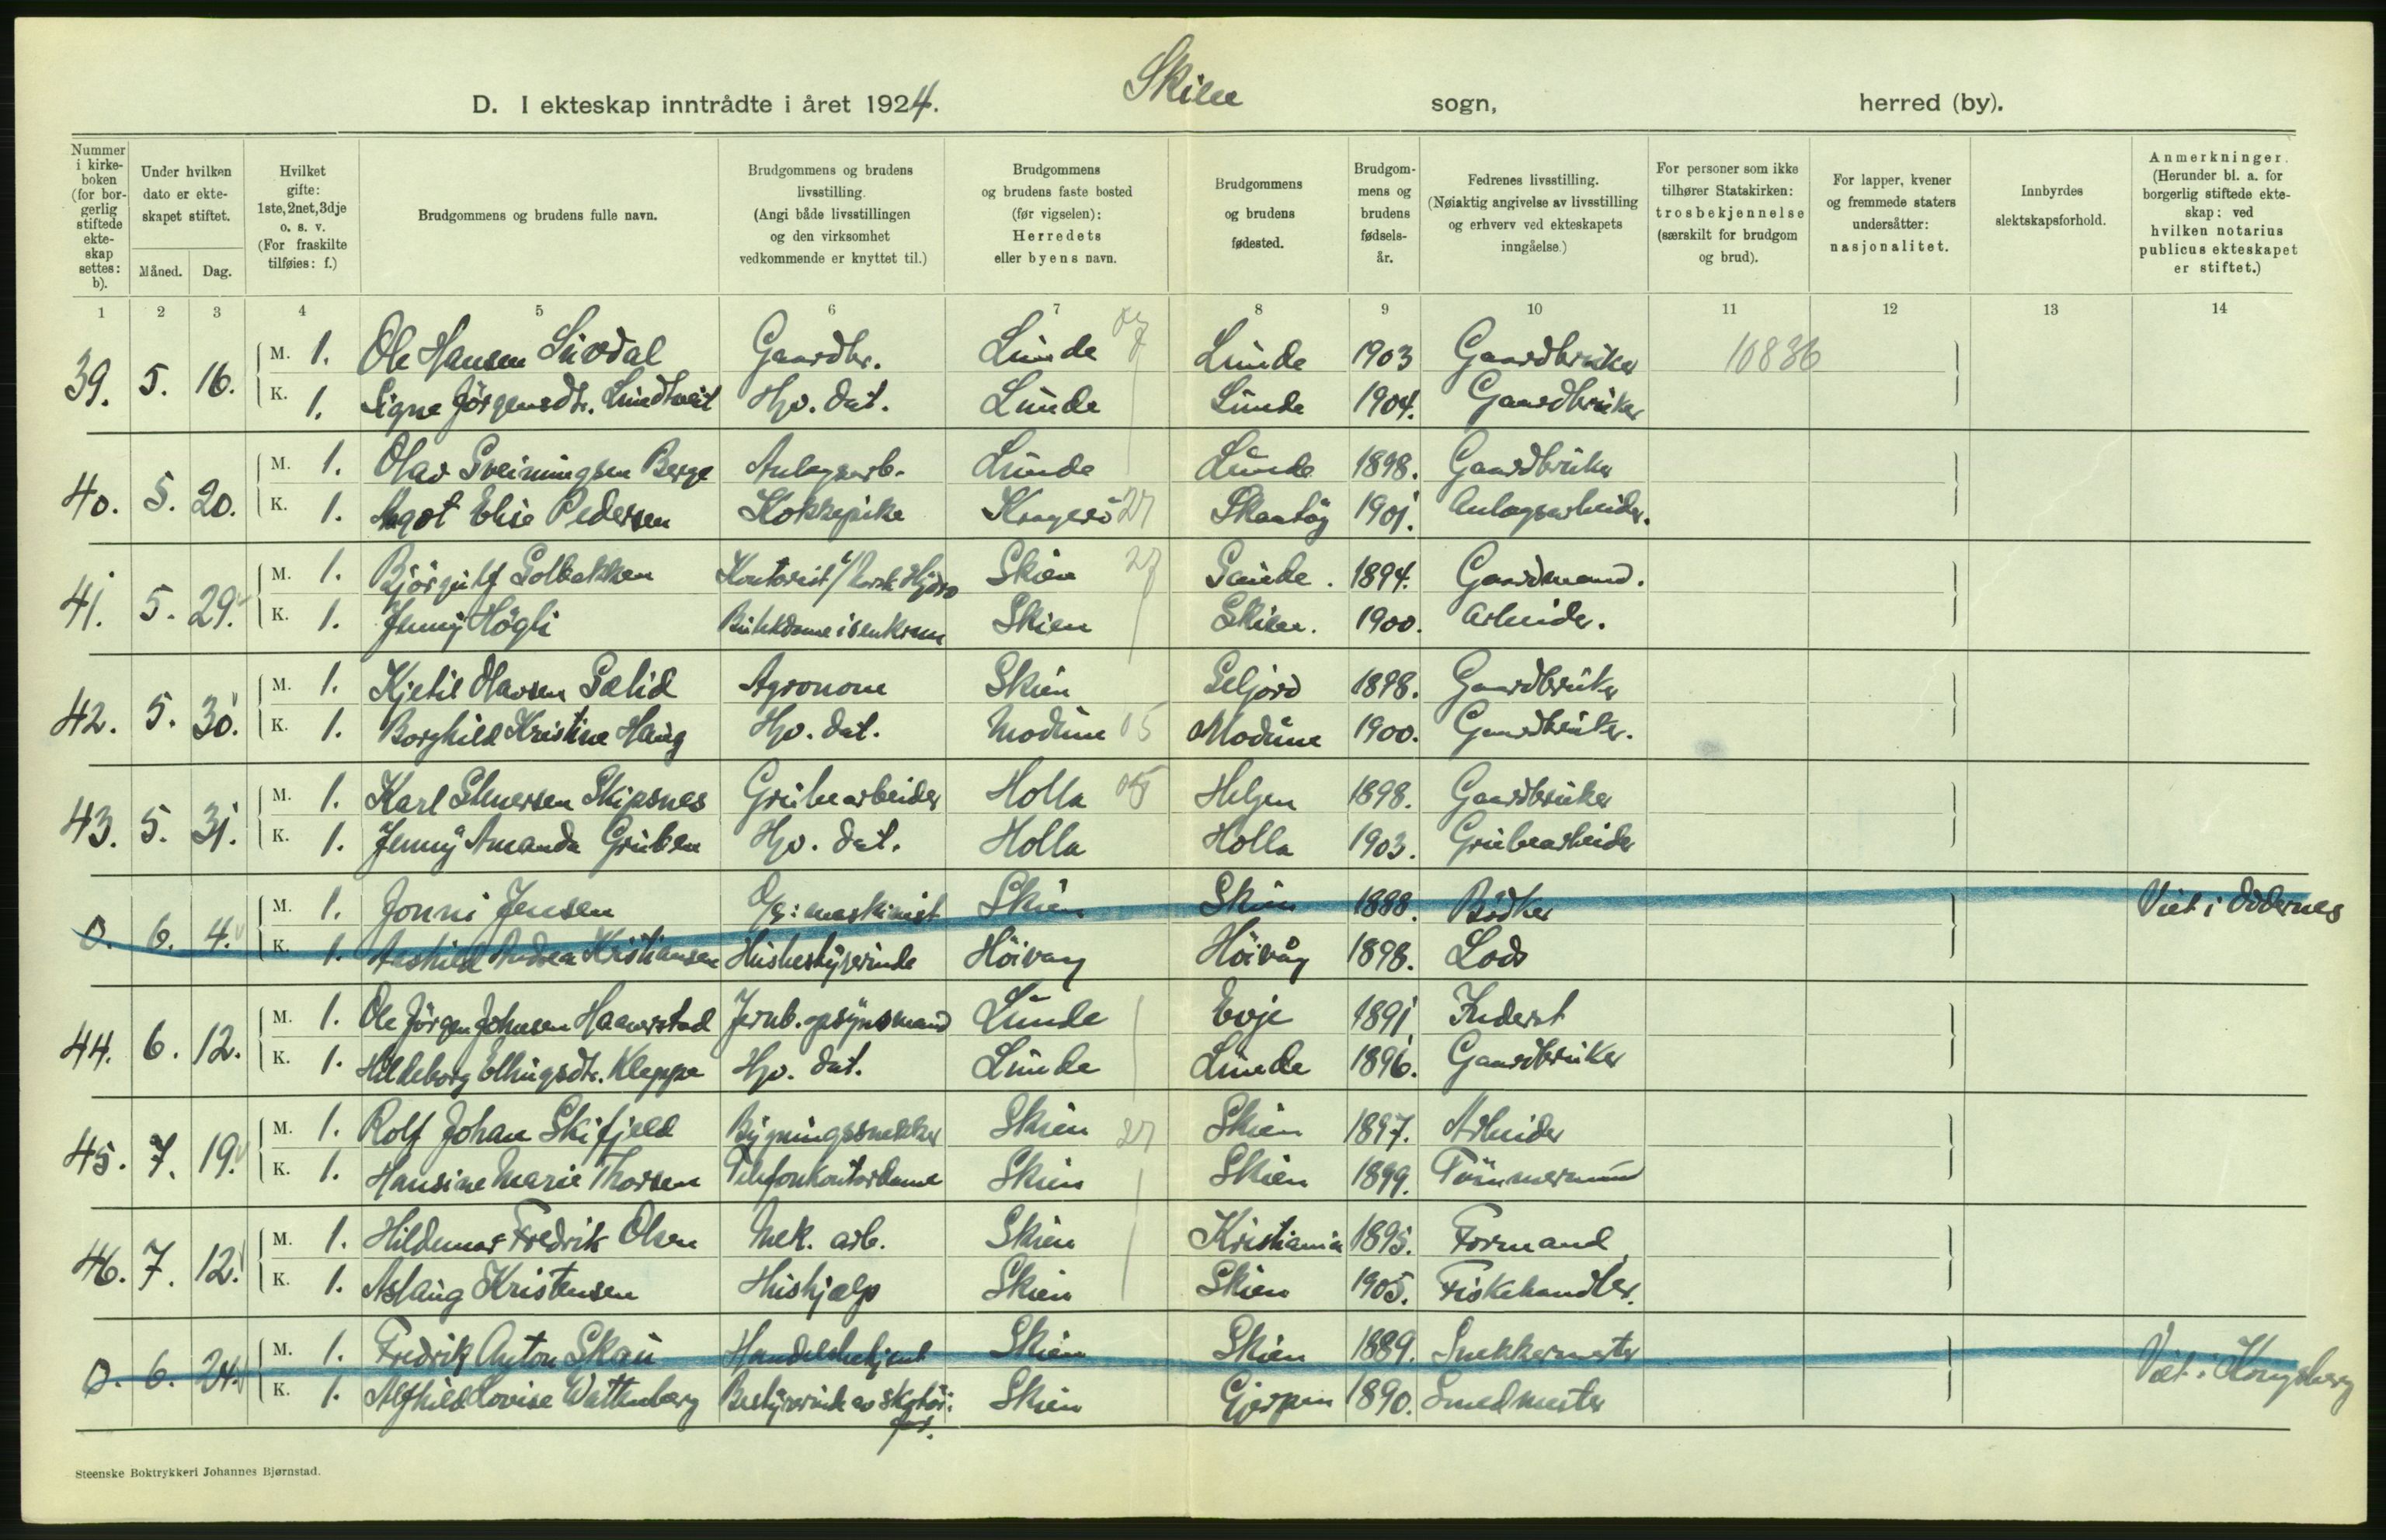 Skien
D. I ekteskap inntrådte i året 1924. sogn, herred (by).
Nummer i kirke- boken (for bor- gerlig stiftede ekte- skap settes: b).
Under hvilken dato er ekte- skapet stiftet.
Måned. Dag.
Hvilket gifte: 1ste, 2net, 3dje o. s. v. (For fraskilte tilføies: f.)
Brudgommens og brudens fulle navn.
Brudgommens og brudens livsstilling. (Angi både livsstillingen og den virksomhet vedkommende er knyttet til.)
Brudgommens og brudens faste bosted (før vigselen): Herredets eller byens navn.
Brudgommens og brudens fødested.
Brudgom- mens og brudens fødsels- år.
Fedrenes livsstilling. (Nøiaktig angivelse av livsstilling og erhverv ved ekteskapets inngåelse.)
For personer som ikke tilhører Statskirken: trosbekjennelse (særskilt for brudgom og brud).
For lapper, kvener og fremmede staters undersåtter: nasjonalitet.
Innbyrdes slektskapsforhold.
Anmerkninger. (Herunder bl. a. for borgerlig stiftede ekte- skap: ved hvilken notarius publicus ekteskapet er stiftet.)
1 2 3 4 5 6 7 8 9 10 11 12 13 14
39. 5. 16. M. 1. Ole Hansen Gaardbr. Lunde Lunde 1903 Gaardbruker 10836
K. 1. Signe Jörgensdtr. Lundtveit Hjv. dat. Lunde Lunde 1904. Gaardbruker
40. 5. 20. M. 1. Olav Sveinungsen Berge Anlagsarb. Lunde Lunde 1898. Gaardbruker
K. 1. Agot Elise Pedersen Kokkepike Kragerö 27 Skaatöy 1901. Anlagsarbeider.
41. 5. 29. M. 1. Björgulf Solbakken Kontorist v/ Norsk Hydro Skien 27 Sauide. 1894. Gaardmand.
K. 1. Jenny Högli Butikdame i isenkram Skien Skien. 1900. Arbeider.
42. 5. 30. M. 1. Kjetil Olavsen Agronom Skien Seljord 1898. Gaardbruker
K. 1. Borghild Kristine Haug Hjv. dat. Modum 05 Modum 1900. Gaardbruker.
43. 5. 31. M. 1. Karl Skipsnes Grubearbeider Holla Helgen 1898. Gaardbruker
K. 1. Jenny Amanda Gruben Hjv. dat. Holla Holla 1903. Grubearbeider
0. 6. 4. M. 1. Jonni Jensen maskinist Skien Skien 1888. Bödker Viet i
K. 1. Aashild Andrea Kristiansen Husbestyrerinde Höivaag Höivåg 1898. Lods
44. 6. 12. M. 1. Ole Jörgen Johnsen Haaverstad Jernb. opsynsmand Lunde Evje 1891 Inderst
K. 1. Hildeborg Ellingsdtr. Kleppe Hjv. dat. Lunde Lunde 1896. Gaardbruker
45. 7. 19. M. 1. Rolf Johan Skifjeld Bygningssnekker Skien 27 Skien 1897. Arbeider
K. 1. Hansine Marie Thorsen Telefonkontordame Skien Skien 1899. Tömmermand
46. 7. 12. M. 1. Hildemar Fredrik Olsen Mek. arb. Skien Kristiania 1895. Formand
K. 1. Aslaug Kristensen Hushjælp Skien Skien 1905. Fiskehandler.
0. 6. 24. M. 1. Fredrik Anton Skau Handelsbetjent Skien Skien 1889. Snekkermester Viet i Kongsberg
K. 1. Alfhild Lovise Wattenberg Bestyrerinde av skotöi: for. Skien Gjerpen 1890. Smedmester
Steenske Boktrykkeri Johannes Bjørnstad.